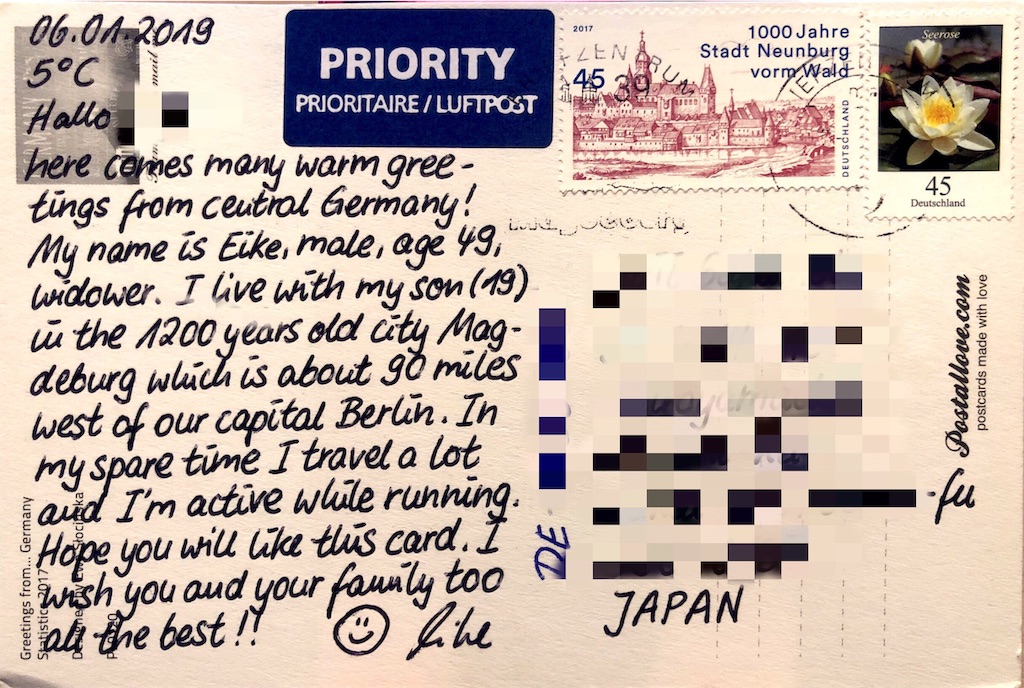 06.01.2019
5°C
Hallo
here comes many warm gree-
tings from central Germany!
My name is Eike, male, age 49,
widower. I live with my son (19)
in the 1200 years old city Mag-
deburg which is about 90 miles
west of our capital Berlin. In
my spare time I travel a lot
and I'm active while running.
Hope you will like this card. I
wish you and your family too
all the best!!
Eike
PRIORITY
PRIORITAIRE / LUFTPOST
2017
1000 Jahre
Stadt Neunburg
vorm Wald
45
DEUTSCHLAND
39
Seerose
45
Deutschland
DE
-fu
JAPAN
Postallove.com
postcards made with love
Greetings from... Germany
Statistics 2017